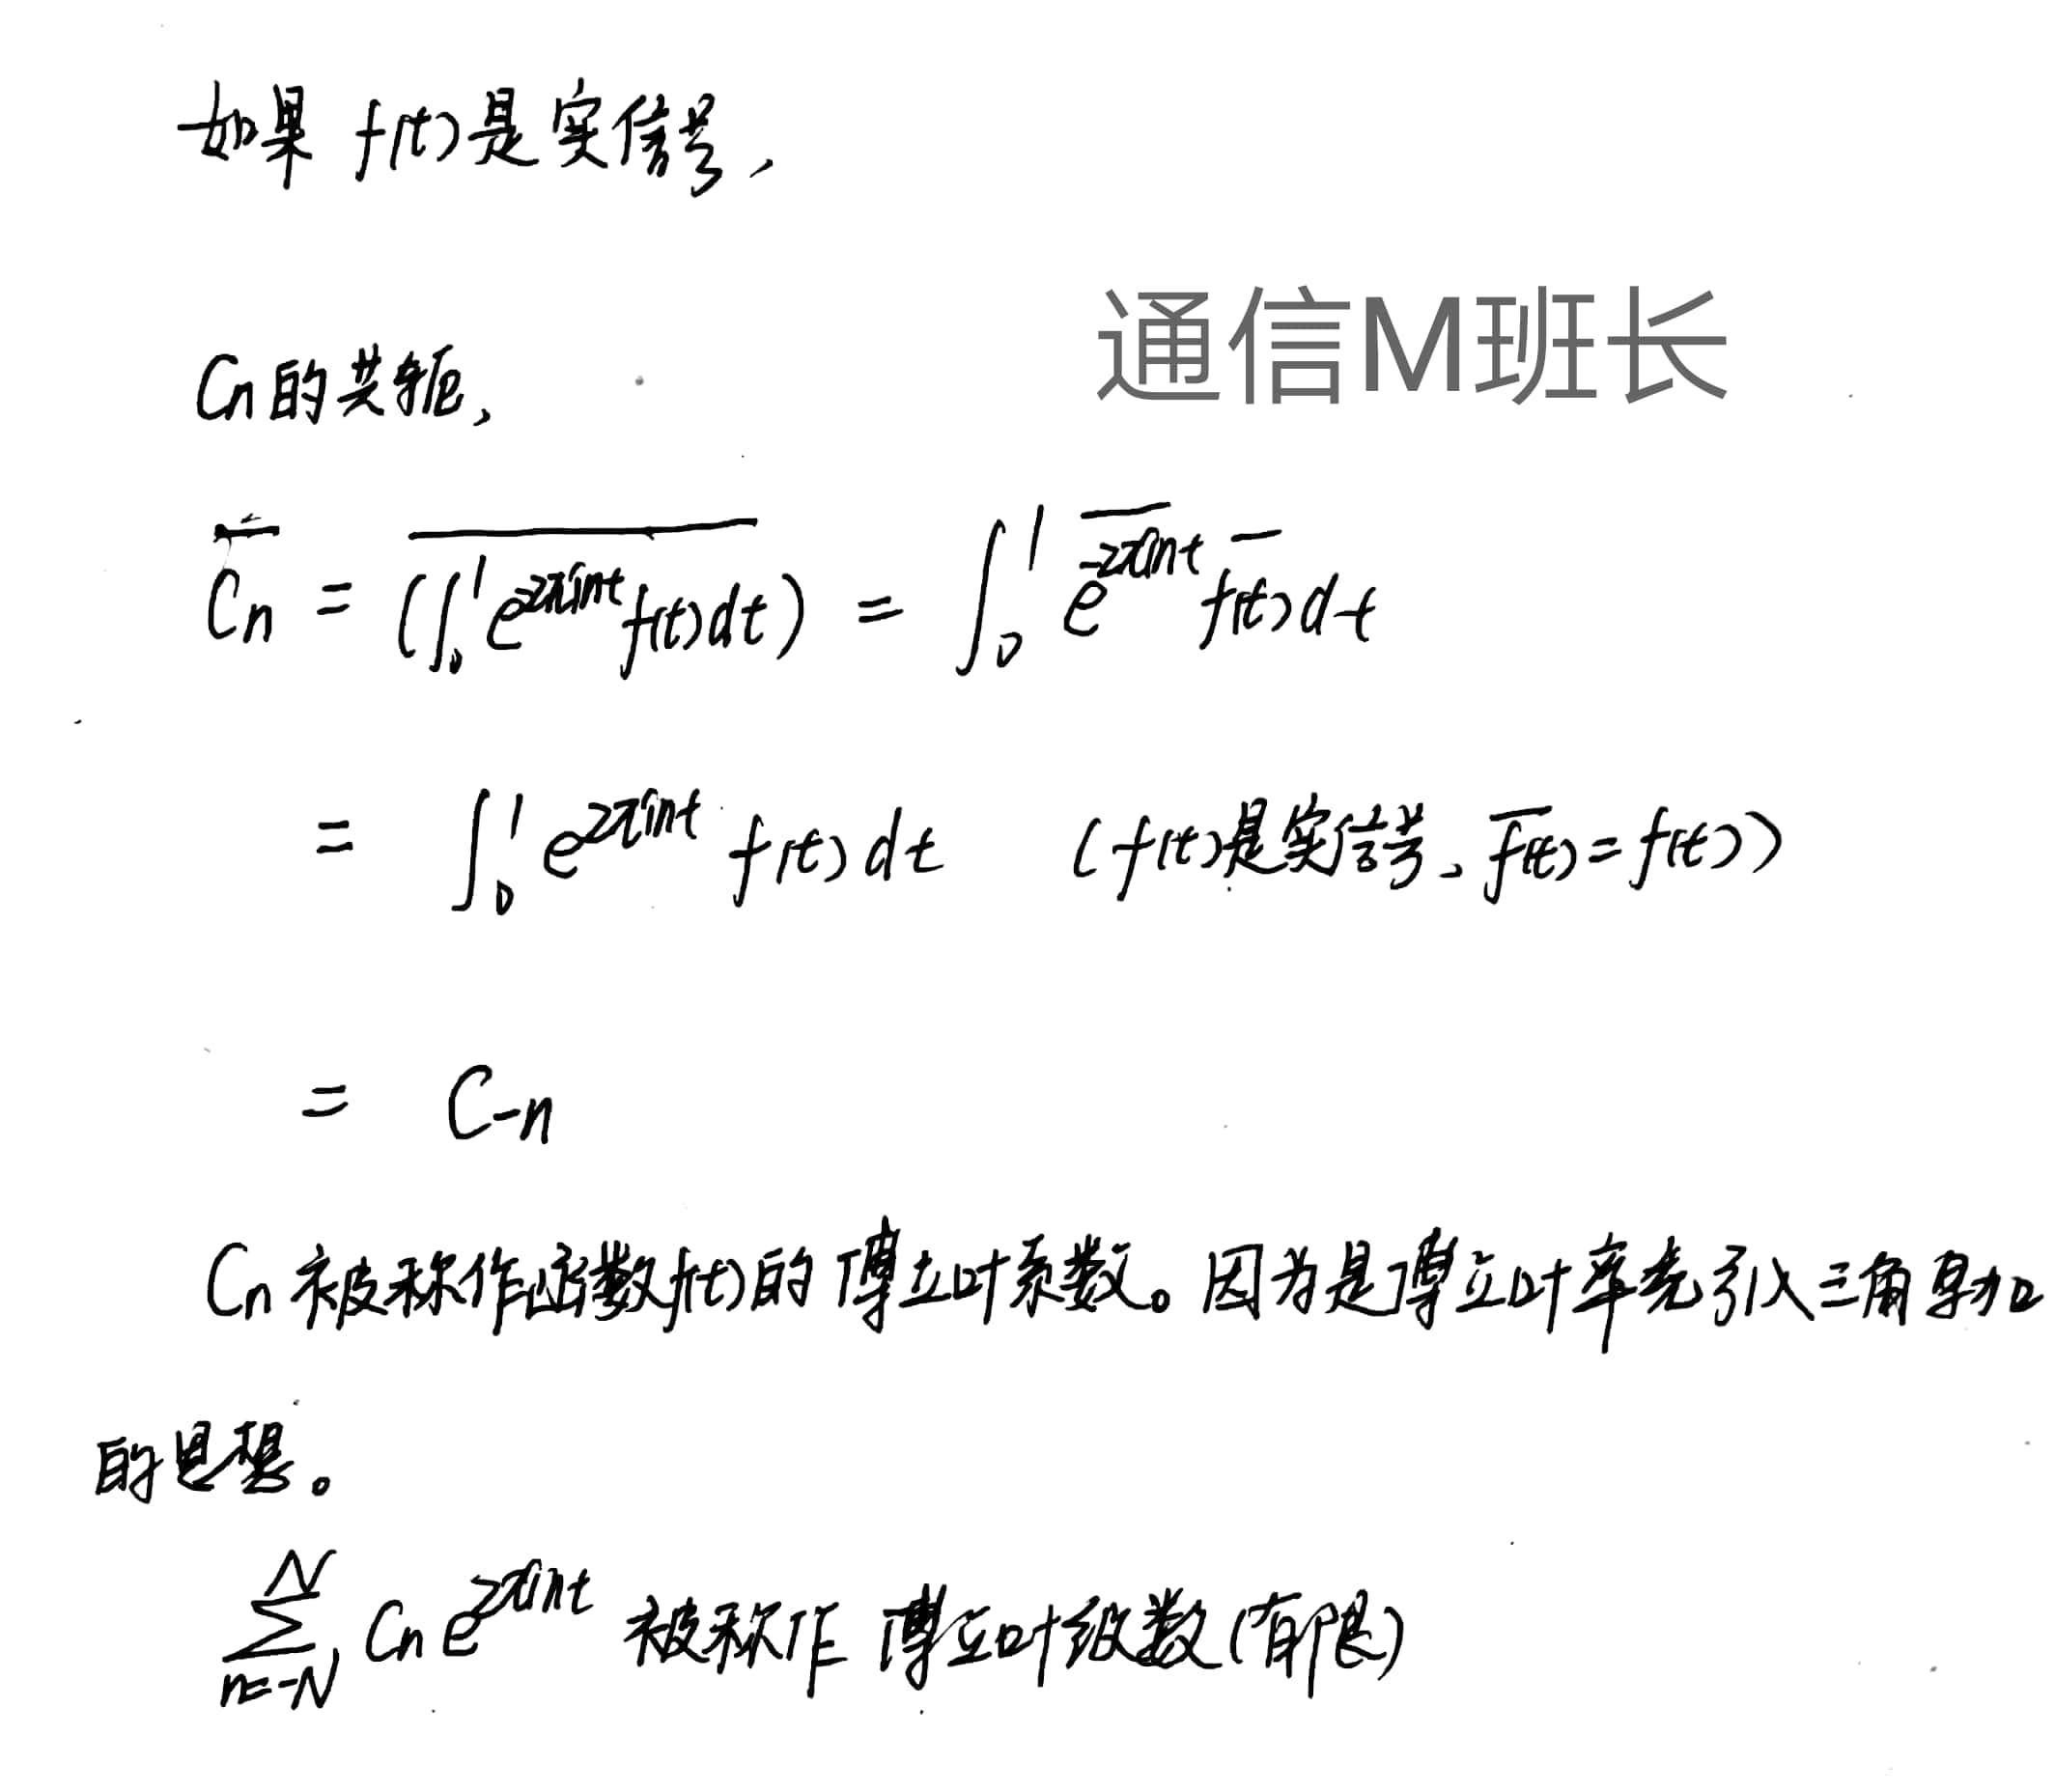 如果 f(t)是实信号,
通信M班长
Cn的共轭,
$\overline{C_n} = \overline{(\int_0^1 e^{-2\pi int} f(t)dt)} = \int_0^1 \overline{e^{-2\pi int}} \overline{f(t)}dt$
$= \int_0^1 e^{2\pi int} f(t)dt$ (f(t)是实信号、$\overline{f(t)}=f(t)$)
$= C_{-n}$
Cn 被称作函数f(t)的傅立叶系数。因为是傅立叶率先引入三角叠加
的思想。
$\sum_{n=-N}^{N} C_n e^{2\pi int}$ 被称作 傅立叶级数(有限)